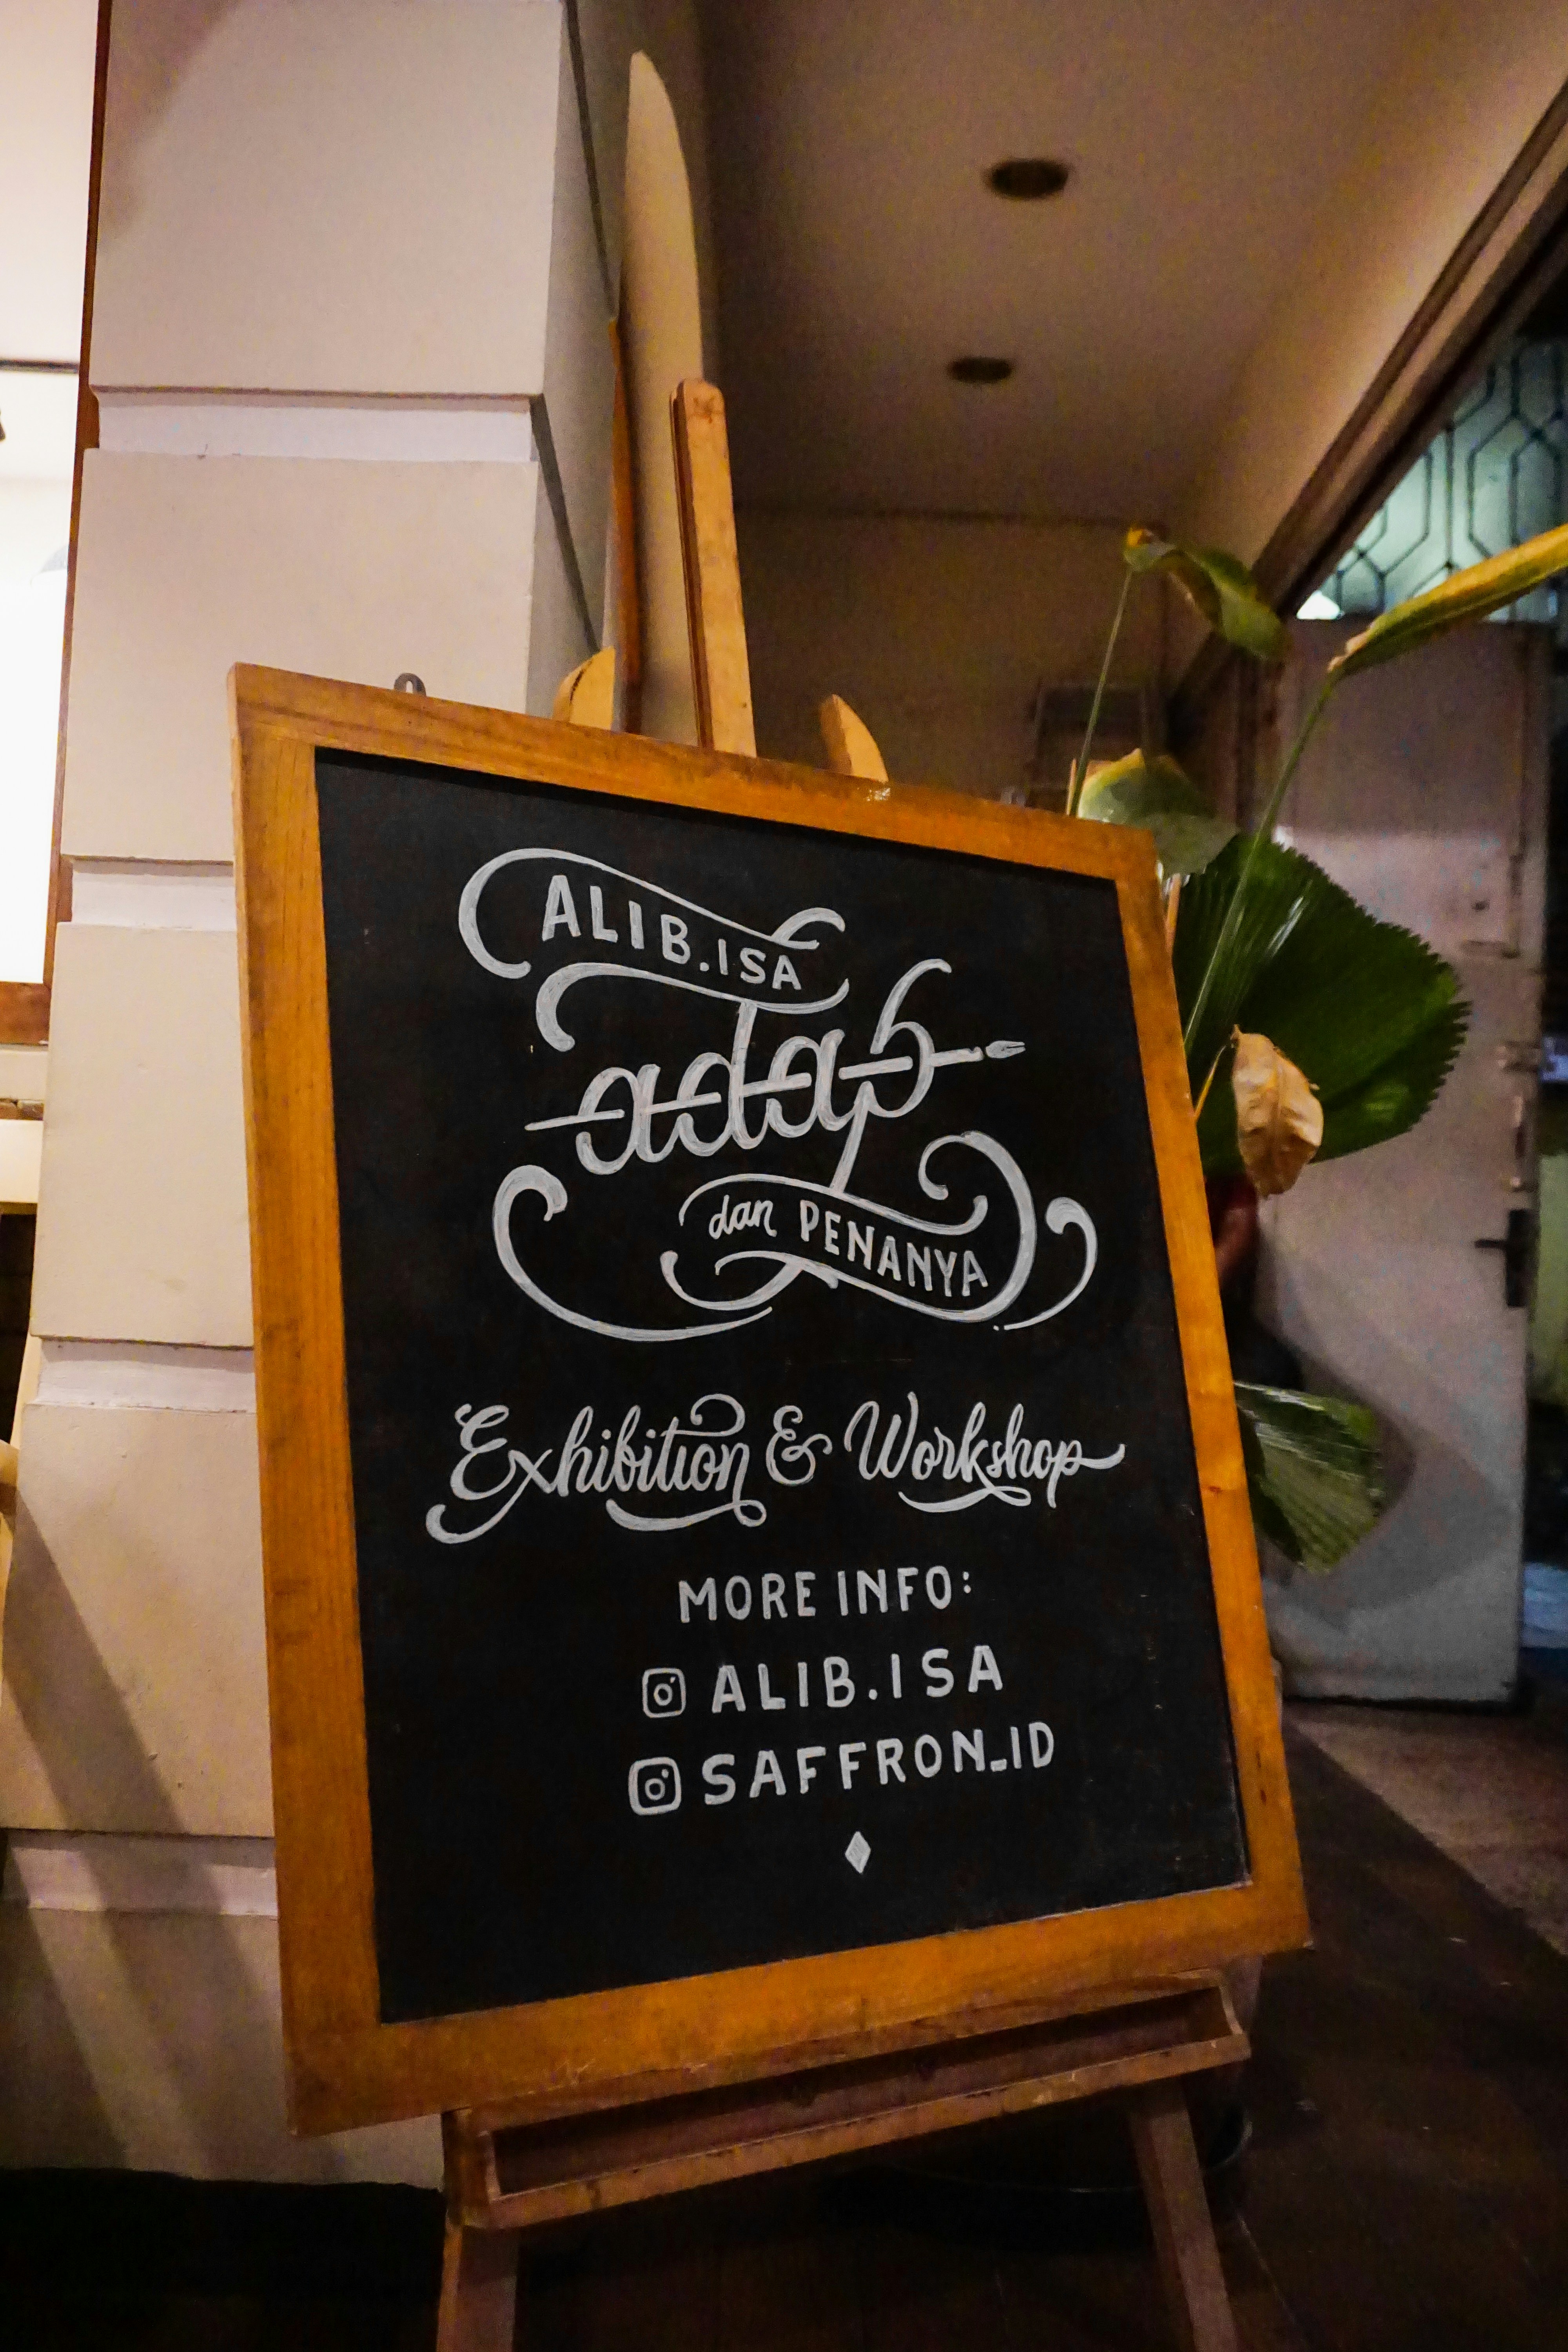 ALIB.ISA
adab
dan PENANYA
Exhibition & Workshop
MORE INFO:
ALIB.ISA
SAFFRON_ID